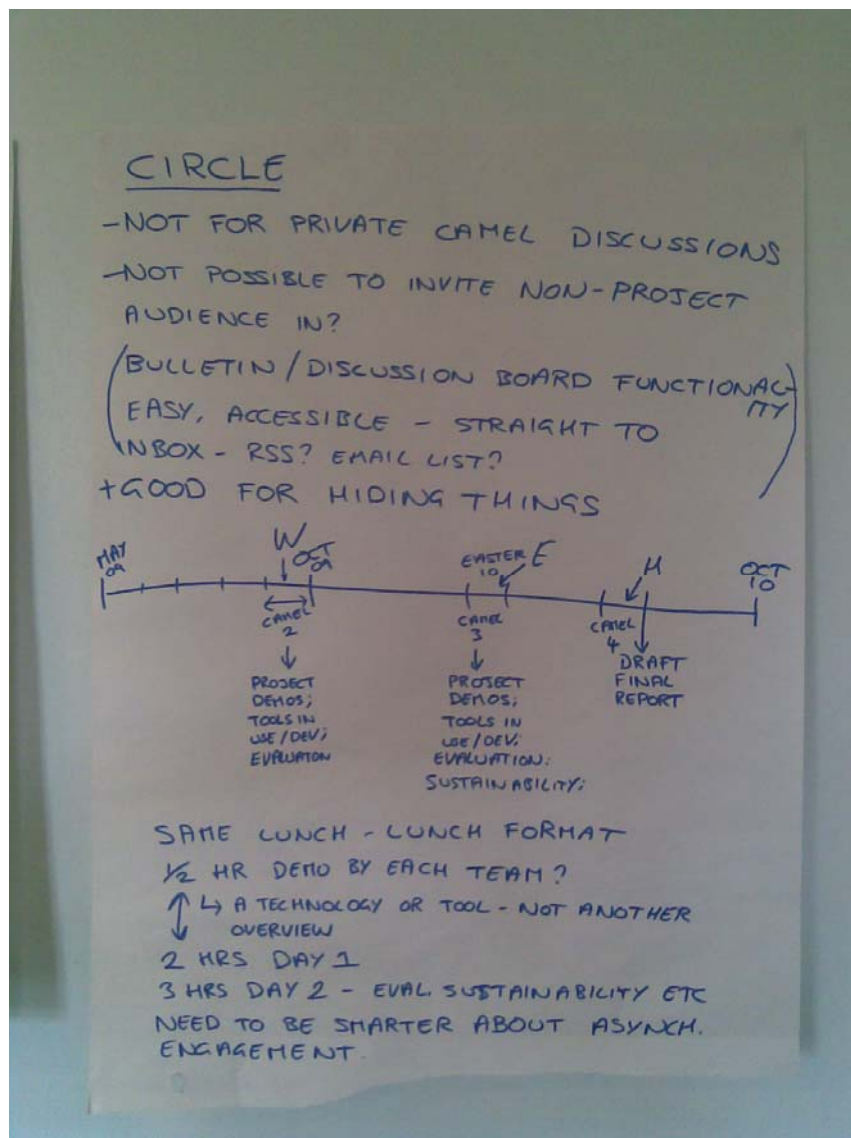 CIRCLE
-NOT FOR PRIVATE CAMEL DISCUSSIONS
-NOT POSSIBLE TO INVITE NON-PROJECT
AUDIENCE IN?
(BULLETIN/DISCUSSION BOARD FUNCTIONAL-
ITY
EASY, ACCESSIBLE - STRAIGHT TO
INBOX - RSS? EMAIL LIST?)
+GOOD FOR HIDING THINGS
MAY
09
W
OCT
09
EASTER
10
E
M
OCT
10
CAMEL
2
CAMEL
3
CAMEL
4
PROJECT
DEMOS;
TOOLS IN
USE/DEV;
EVALUATON
PROJECT
DEMOS;
TOOLS IN
USE/DEV;
EVALUATION;
SUSTAINABILITY;
DRAFT
FINAL
REPORT
SAME LUNCH - LUNCH FORMAT
1/2 HR DEMO BY EACH TEAM?
↳ A TECHNOLOGY OR TOOL - NOT ANOTHER
OVERVIEW
2 HRS DAY 1
3 HRS DAY 2 - EVAL. SUSTAINABILITY ETC
NEED TO BE SMARTER ABOUT ASYNCH.
ENGAGEMENT.